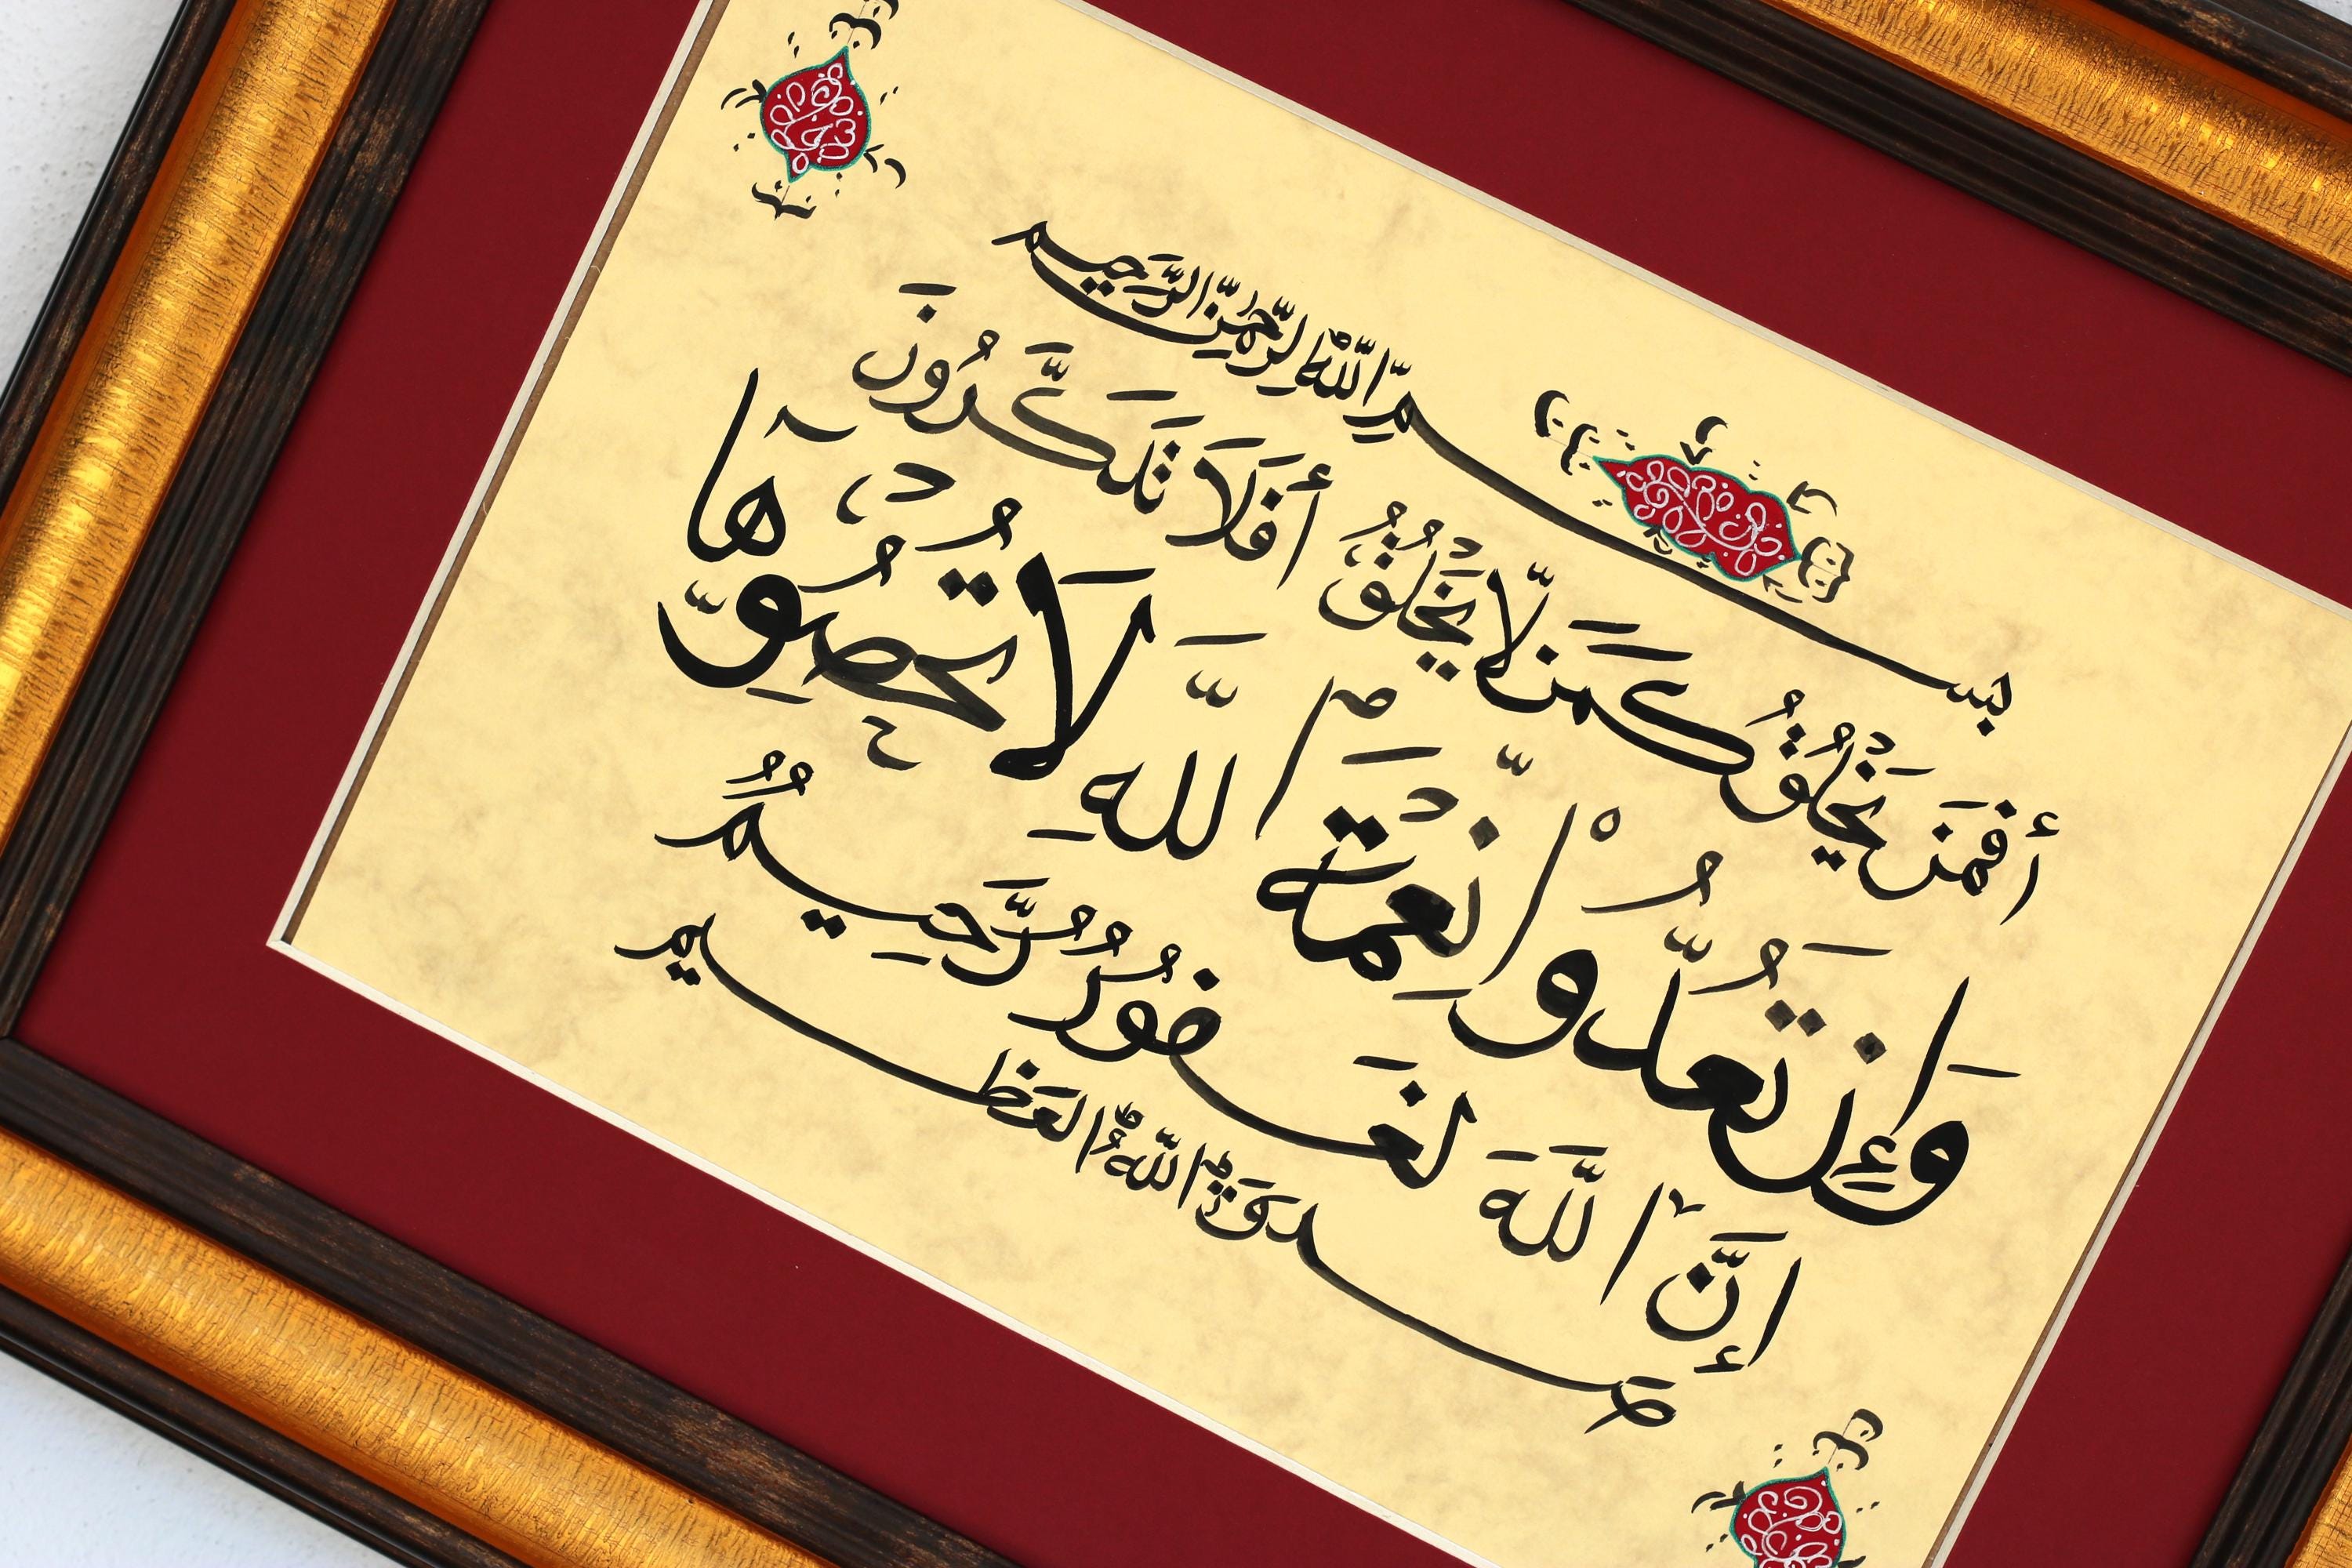 بسم الله الرحمن الرحيم
أَفَمَن يَخْلُقُ كَمَن لَّا يَخْلُقُ أَفَلَا تَذَكَّرُونَ
وَإِن تَعُدُّواْ نِعْمَةَ اللَّهِ لَا تُحْصُوهَآ
إِنَّ اللَّهَ لَغَفُورٌ رَّحِيمٌ
صدق الله العظيم